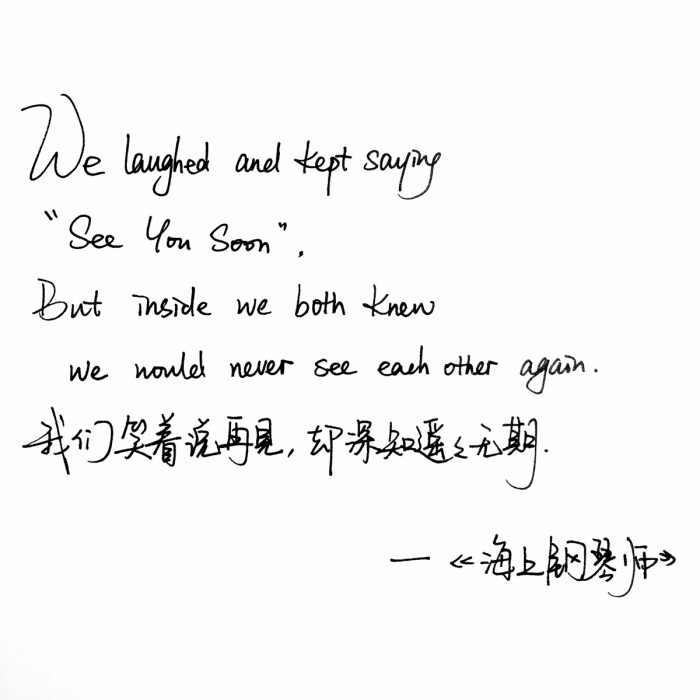 We laughed and kept saying
"See You Soon",
But inside we both knew
we would never see each other again.
我们笑着说再见,却深知遥々无期.
— 《海上钢琴师》